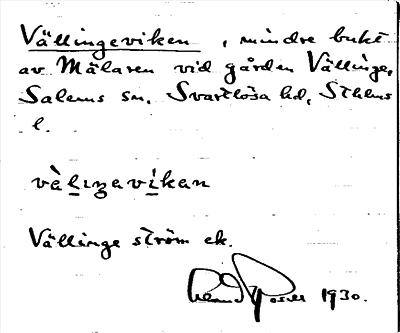 Vällingeviken, mindre bukt
av Mälaren vid gården Vällinge,
Salems sn. Svartlösa hd, Sthlms
l.
vàlıŋavikan
Vällinge ström ek.
1930.